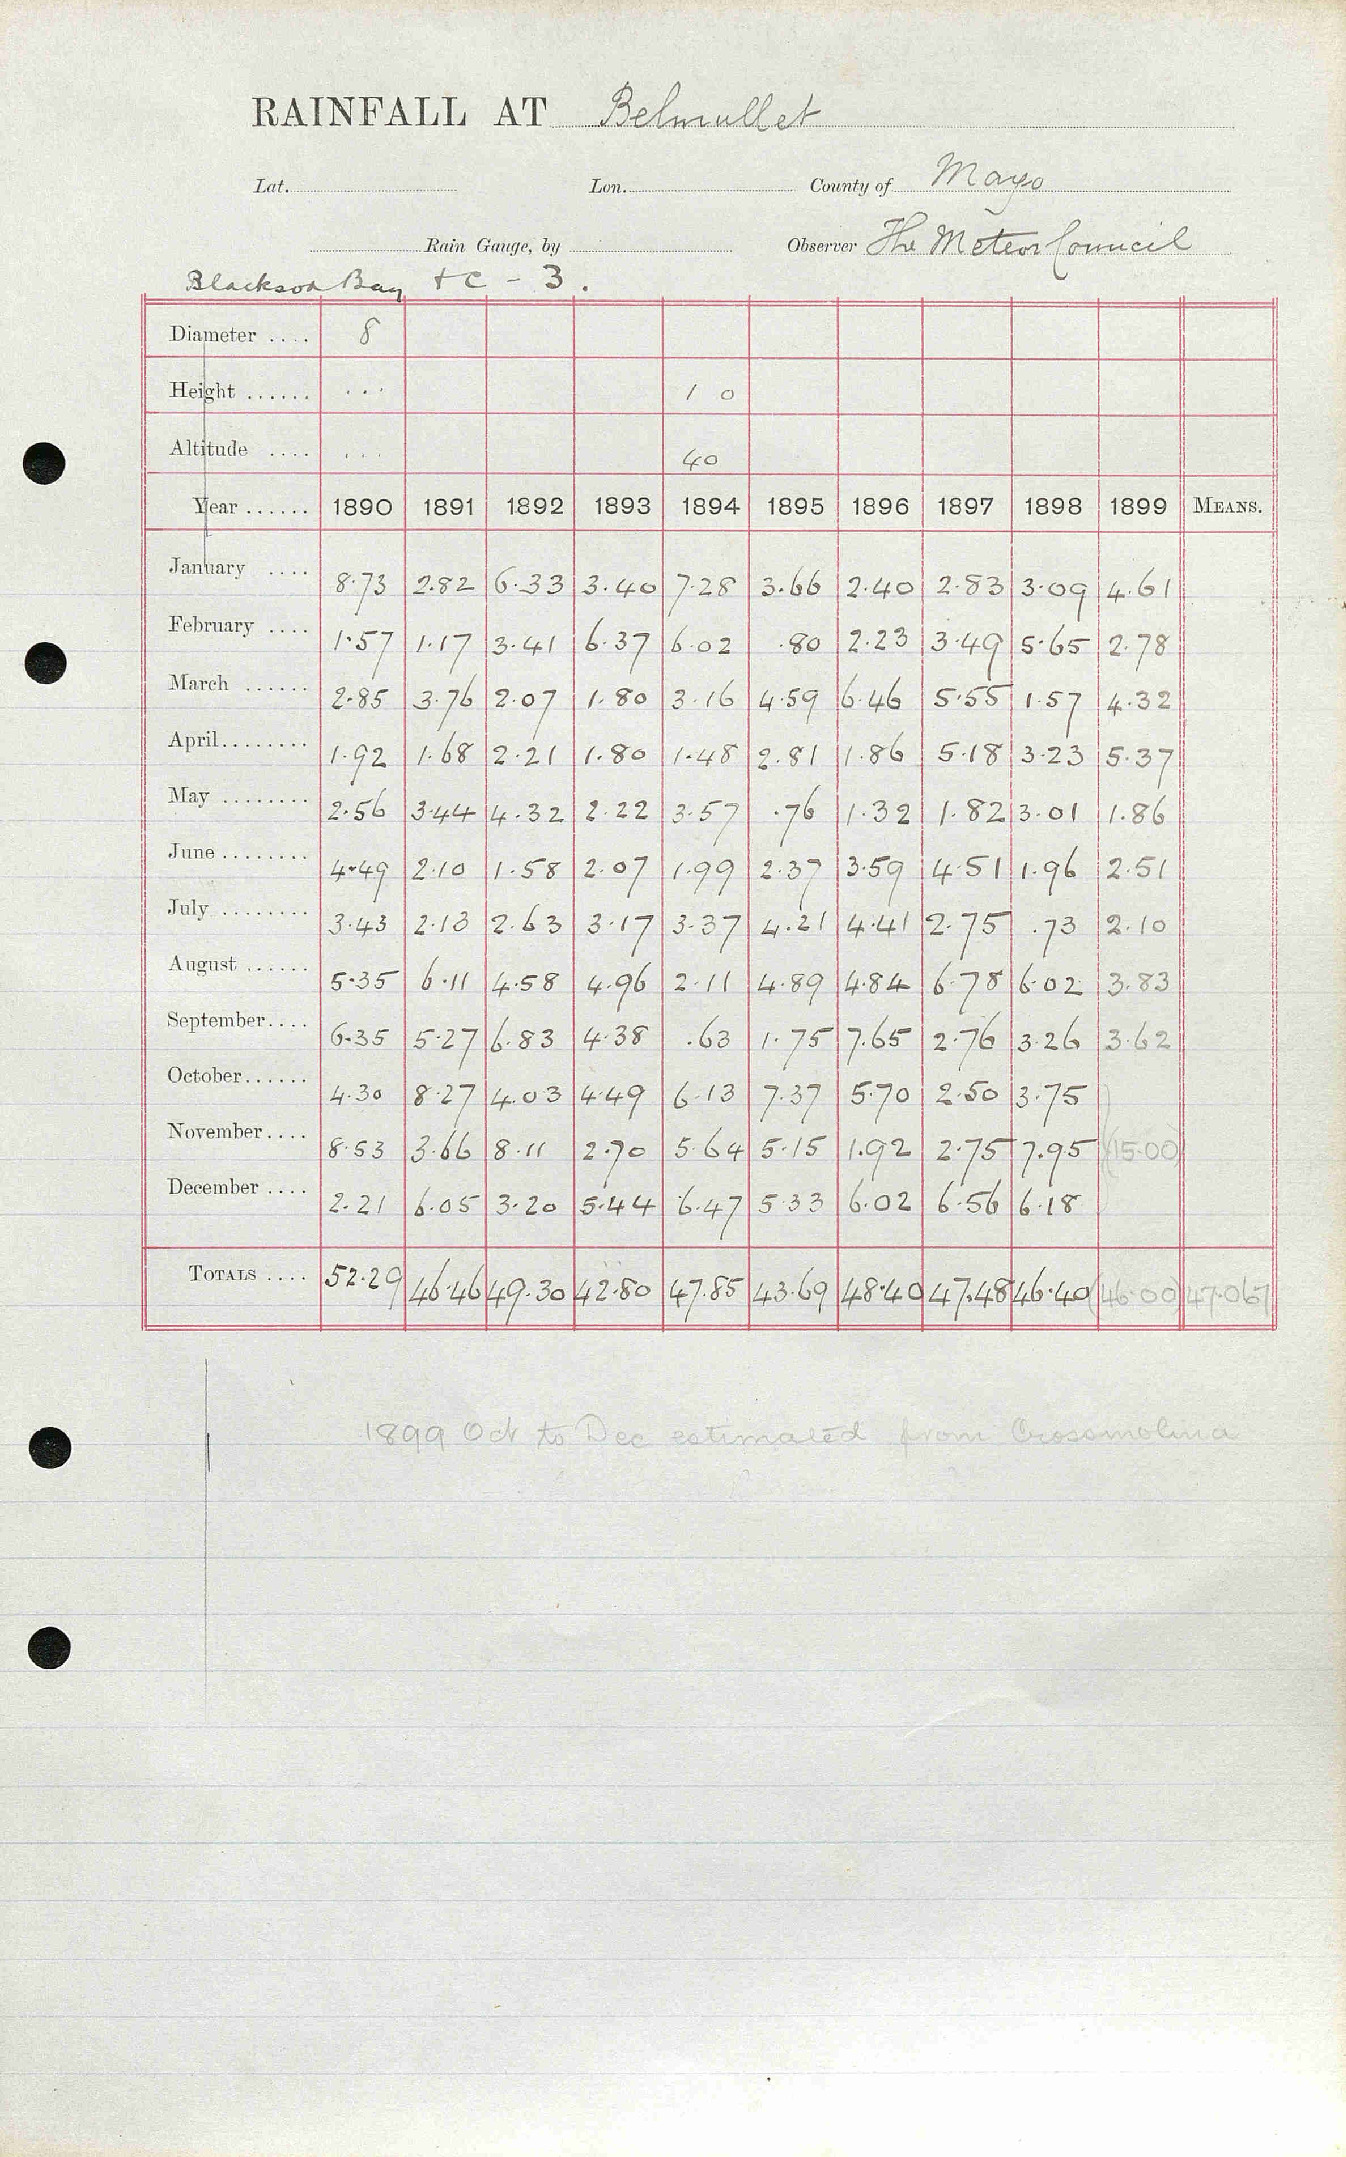 RAINFALL AT Belmullet
Lat. Lon. County of Mayo
Rain Gauge, by Observer The Meteor Council
Blacksod Bay + C - 3.
Diameter .... 8
Height ...... ... 1 0
Altitude .... ... 40
Year ...... 1890 1891 1892 1893 1894 1895 1896 1897 1898 1899 MEANS.
January .... 8.73 2.82 6.33 3.40 7.28 3.66 2.40 2.83 3.09 4.61
February .... 1.57 1.17 3.41 6.37 6.02 .80 2.23 3.49 5.65 2.78
March ...... 2.85 3.76 2.07 1.80 3.16 4.59 6.46 5.55 1.57 4.32
April........ 1.92 1.68 2.21 1.80 1.48 2.81 1.86 5.18 3.23 5.37
May ........ 2.56 3.44 4.32 2.22 3.57 .76 1.32 1.82 3.01 1.86
June ........ 4.49 2.10 1.58 2.07 1.99 2.37 3.59 4.51 1.96 2.51
July ........ 3.43 2.13 2.63 3.17 3.37 4.21 4.41 2.75 .73 2.10
August ...... 5.35 6.11 4.58 4.96 2.11 4.89 4.84 6.78 6.02 3.83
September.... 6.35 5.27 6.83 4.38 .63 1.75 7.65 2.76 3.26 3.62
October...... 4.30 8.27 4.03 4.49 6.13 7.37 5.70 2.50 3.75
November.... 8.53 3.66 8.11 2.70 5.64 5.15 1.92 2.75 7.95 (15.00)
December .... 2.21 6.05 3.20 5.44 6.47 5.33 6.02 6.56 6.18
TOTALS .... 52.29 46.46 49.30 42.80 47.85 43.69 48.40 47.48 46.40 (46.00) 47.067
1899 Oct to Dec estimated from Crossmolina